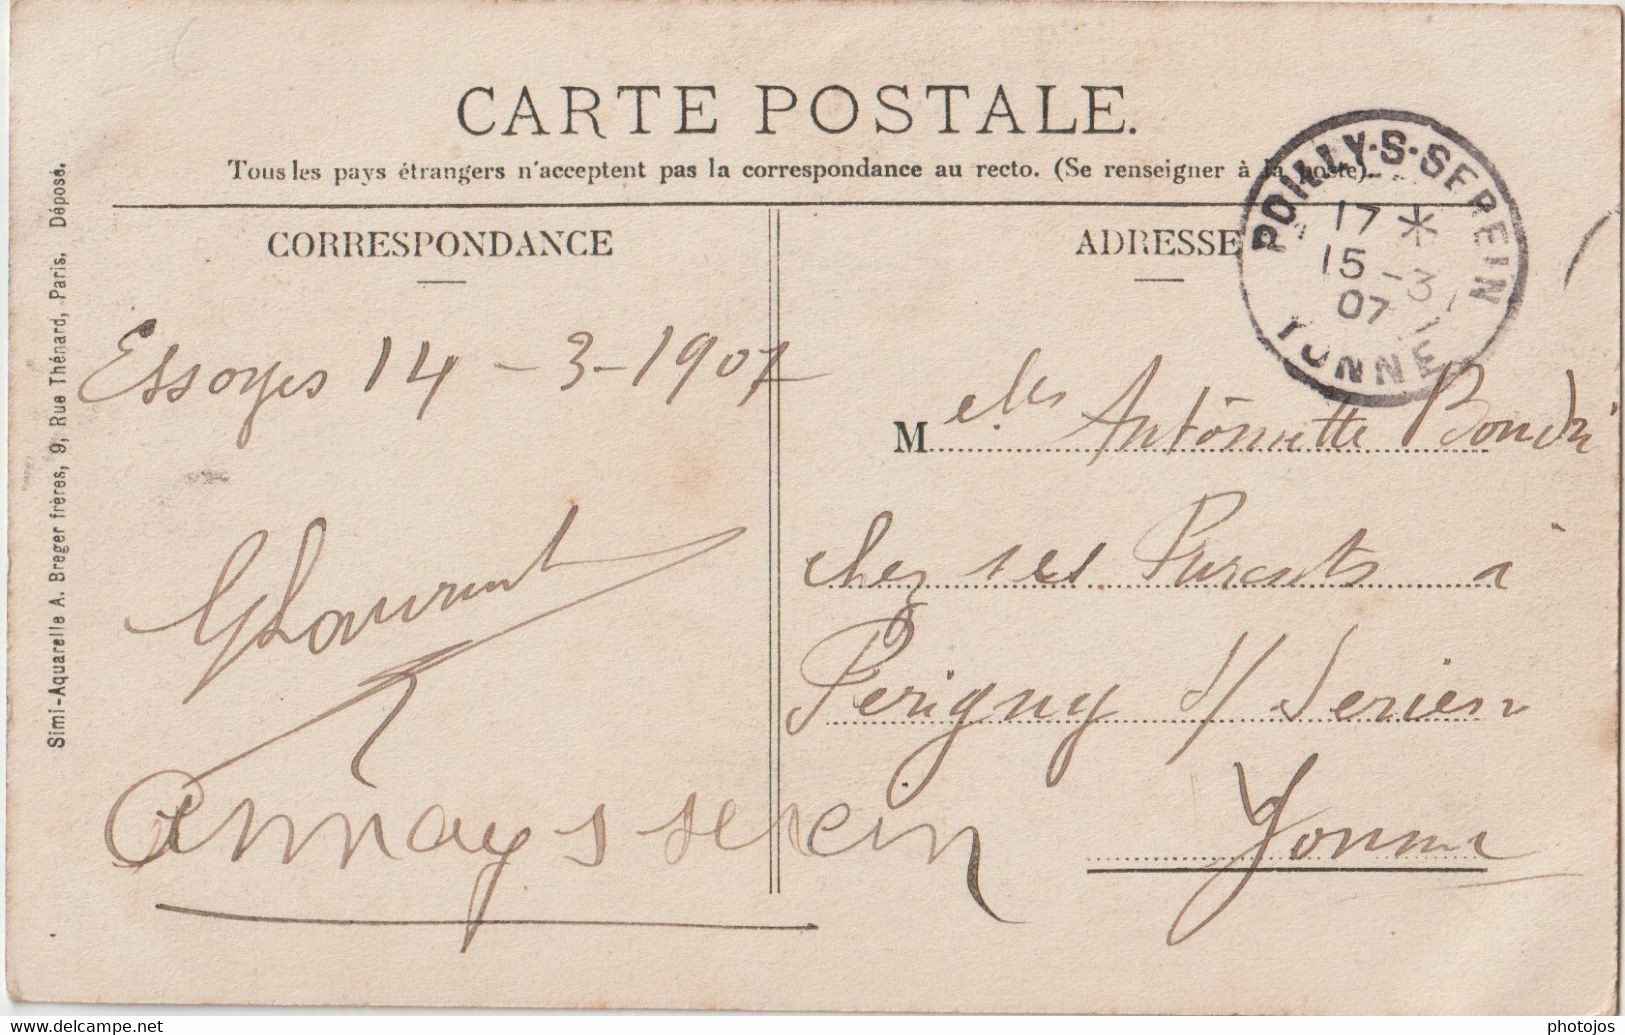 CARTE POSTALE.
Tous les pays étrangers n'acceptent pas la correspondance au recto. (Se renseigner à la poste).
POILLY-S-SEREIN
17 *
15 -3
07
YONNE
CORRESPONDANCE
ADRESSE
Simi-Aquarelle A. Breger frères, 9, Rue Thénard, Paris. Déposé.
Essoyes 14 - 3 - 1907
GLaurent
Annay s serein
Melles Antoinette
chez ses Parents à
Perigny s/ Serien
Yonne
www.delcampe.net
photojos